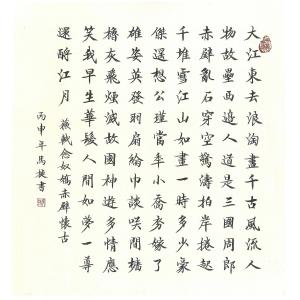 大江東去浪淘盡千古風流人
物故壘西邊人道是三國周郎
赤壁亂石穿空驚濤拍岸捲起
千堆雪江山如畫一時多少豪
傑遙想公瑾當年小喬初嫁了
雄姿英發羽扇綸巾談咲間檣
櫓灰飛煙滅故國神遊多情應
笑我早生華髮人間如夢一尊
還酹江月 蘇軾念奴嬌赤壁懷古
丙申年馬捷書